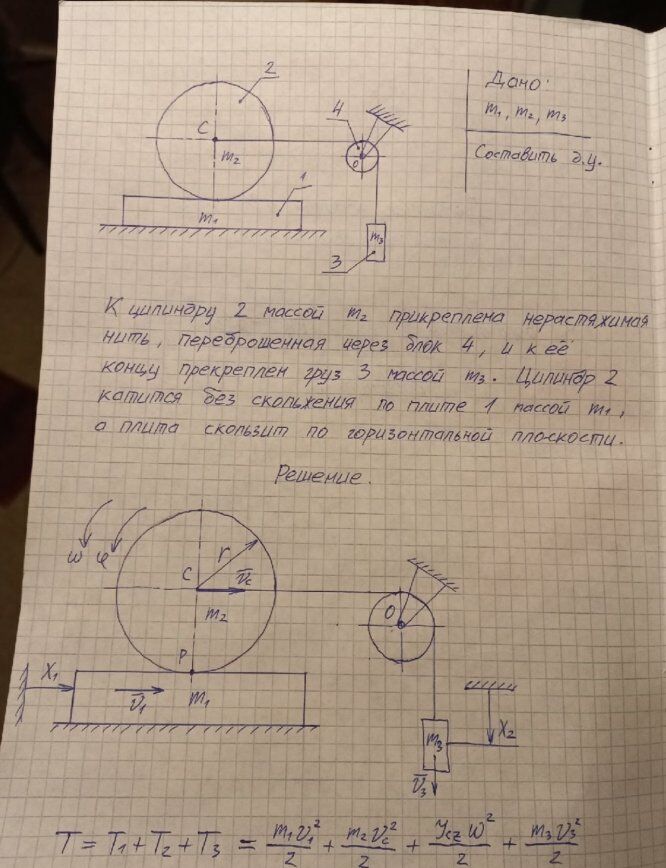 2
C
m₂
4
O
1
m₁
m₃
3
Дано:
m₁, m₂, m₃
Составить д.у.
К цилиндру 2 массой m₂ прикреплена нерастяжимая
нить, переброшенная через блок 4, и к её
концу прекреплен груз 3 массой m₃. Цилиндр 2
катится без скольжения по плите 1 массой m₁,
а плита скользит по горизонтальной плоскости.
Решение.
ω φ
r
C
v̄c
m₂
O
P
X₁
v̄₁
m₁
m₃
X₂
v̄₃
T = T₁ + T₂ + T₃ = m₁v₁²/2 + m₂vc²/2 + Jczω²/2 + m₃v₃²/2